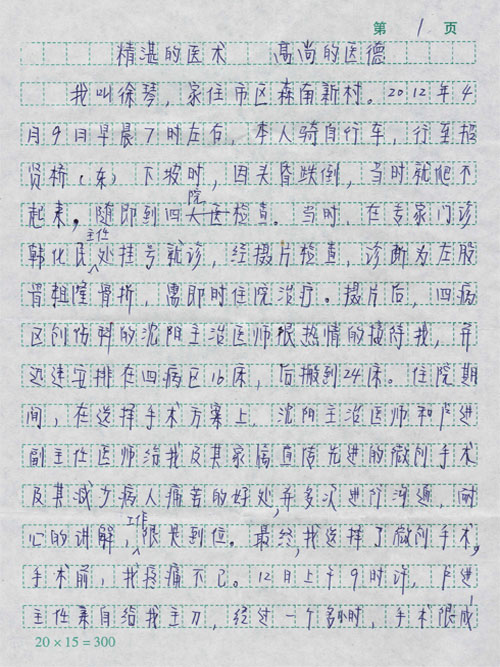 第 1 页
精湛的医术 高尚的医德
我叫徐琴，家住市区森南新村。2012年4
月9日早晨7时左右，本人骑自行车，行至招
贤桥（东）下坡时，因头昏跌倒，当时就爬不
起来，随即到四院检查。当时，在专家门诊
韩化民主任处挂号就诊，经摄片检查，诊断为左股
骨粗隆骨折，需即时住院治疗。摄片后，四病
区创伤科的沈阳主治医师很热情的接待我，并
迅速安排在四病区16床，后搬到24床。住院期
间，在选择手术方案上，沈阳主治医师和卢进
副主任医师给我及其家属宣传先进的微创手术
及其减少病人痛苦的好处，并多次进行沟通，耐
心的讲解，工作很是到位。最终，我选择了微创手术，
手术前，我疼痛不已。12日上午9时许，卢进
主任亲自给我主刀，经过一个多小时，手术很成
20×15＝300